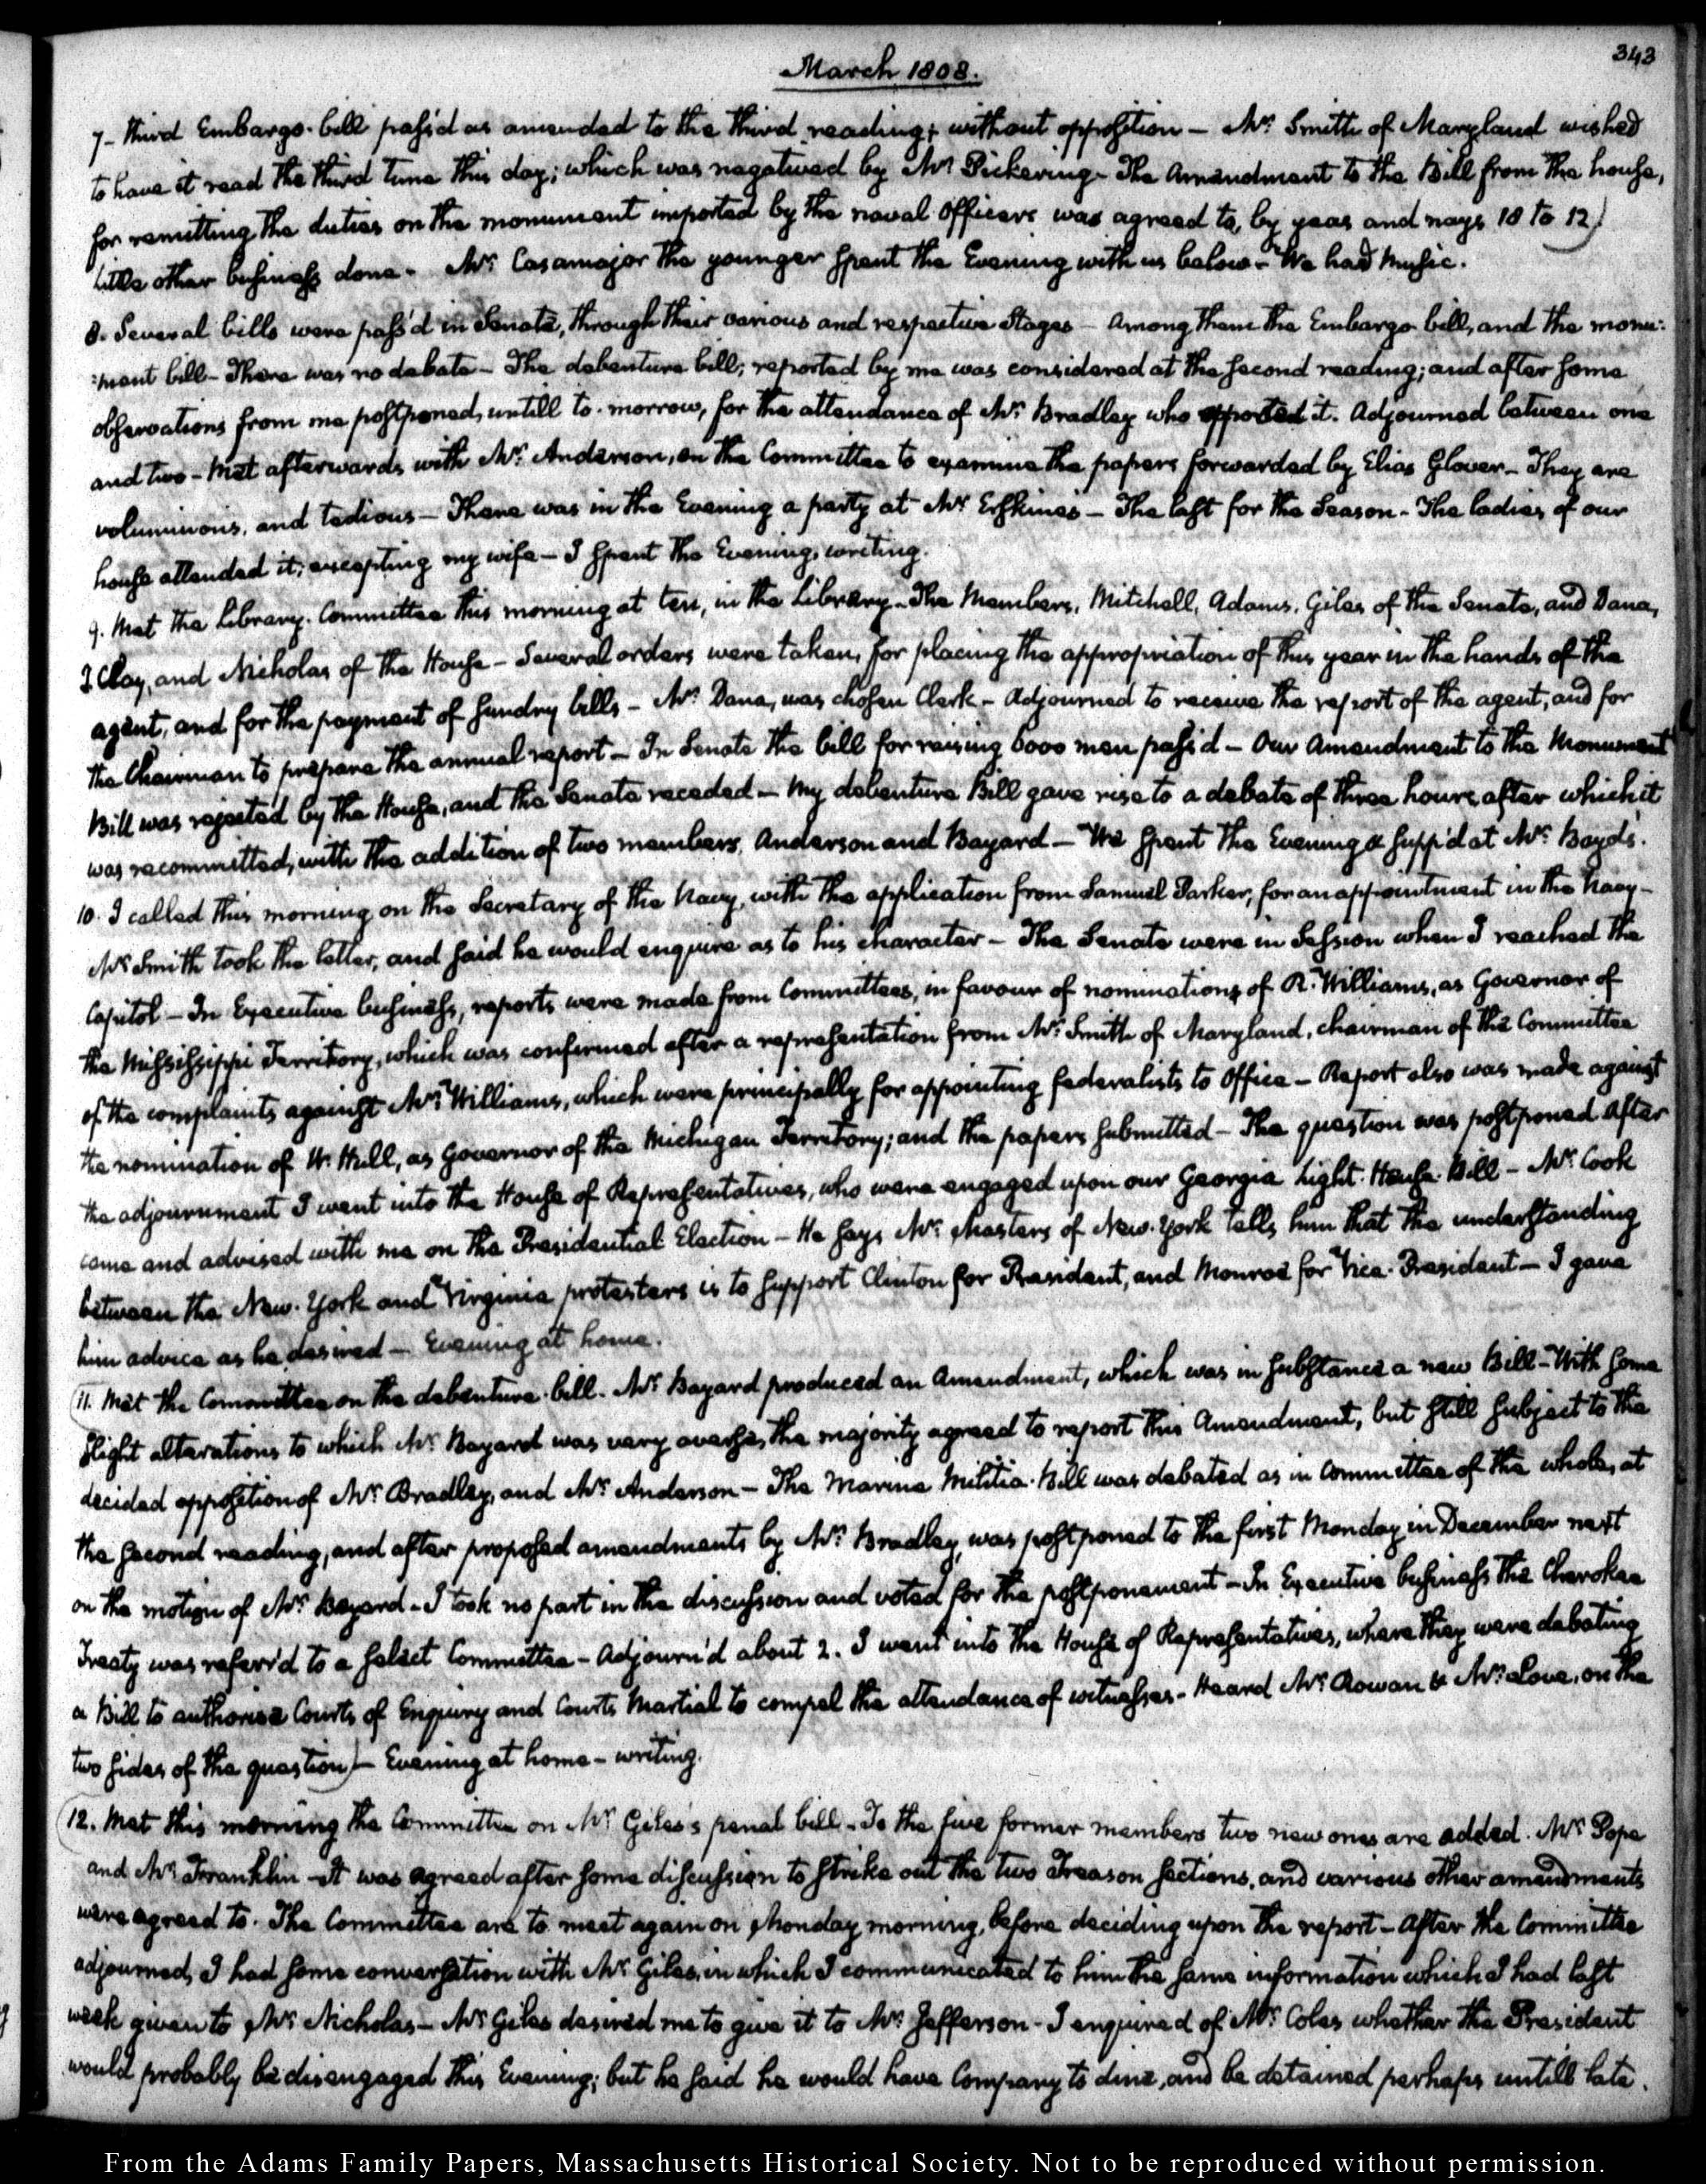 343
March 1808.
7 - third Embargo-bill pass'd as amended to the third reading; without opposition — Mr. Smith of Maryland wished
to have it read the third time this day; which was negatived by Mr. Pickering - The Amendment to the Bill from the house,
for remitting the duties on the monument imported by the naval officers was agreed to, by yeas and nays 18 to 12)
little other business done - Mr. Casamajor the younger spent the Evening with us below - We had Music.
8. Several bills were pass'd in Senate, through their various and respective stages — Among them the Embargo bill, and the monu:
:ment bill - There was no debate - The debenture bill; reported by me was considered at the second reading; and after some
observations from me postponed, untill to-morrow, for the attendance of Mr. Bradley who opposed it. Adjourned between one
and two - Met afterwards with Mr. Anderson, on the Committee to examine the papers forwarded by Elias Glover - They are
voluminous, and tedious — There was in the Evening a party at Mr. Erskine's — The last for the Season - The ladies of our
house attended it; excepting my wife — I spent the Evening, writing.
9. Met the Library-Committee this morning at ten, in the Library - The Members, Mitchell, Adams, Giles of the Senate, and Dana,
J Clay, and Nicholas of the House - Several orders were taken, for placing the appropriation of this year in the hands of the
agent, and for the payment of sundry bills - Mr. Dana, was chosen Clerk - Adjourned to receive the report of the agent, and for
the Chairman to prepare the annual report - In Senate the bill for raising 6000 men pass'd - Our Amendment to the Monument
Bill was rejected by the House, and the Senate receded — My debenture Bill gave rise to a debate of three hours, after which it
was recommitted, with the addition of two members, Anderson and Bayard — We spent the Evening & supp'd at Mr. Boyd's.
10. I called this morning on the Secretary of the Navy, with the application from Samuel Parker, for an appointment in the Navy -
Mr. Smith took the letter, and said he would enquire as to his character - The Senate were in Session when I reached the
Capitol — In Executive business, reports were made from Committees, in favour of nominations of R. Williams, as Governor of
the Mississippi Territory, which was confirmed after a representation from Mr. Smith of Maryland, chairman of the Committee
of the complaints against Mr. Williams, which were principally for appointing federalists to Office — Report also was made against
the nomination of W. Hull, as Governor of the Michigan Territory; and the papers submitted - The question was postponed after
the adjournment I went into the House of Representatives, who were engaged upon our Georgia Light-House-Bill — Mr. Cook
came and advised with me on the Presidential Election - He says Mr. Masters of New-York tells him that the understanding
between the New-York and Virginia protesters is to support Clinton for President, and Monroe for Vice-President — I gave
him advice as he desired — Evening at home.
(11. Met the Committee on the debenture-bill. Mr. Bayard produced an Amendment, which was in substance a new Bill - With some
slight alterations to which Mr. Bayard was very averse, the majority agreed to report this Amendment, but still subject to the
decided opposition of Mr. Bradley, and Mr. Anderson - The Marine Militia-Bill was debated as in Committee of the whole, at
the second reading, and after proposed amendments by Mr. Bradley, was postponed to the first Monday in December next
on the motion of Mr. Bayard - I took no part in the discussion and voted for the postponement - In Executive business the Cherokee
Treaty was referr'd to a select Committee - Adjourn'd about 2. I went into the House of Representatives, where they were debating
a Bill to authorise Courts of Enquiry and Courts Martial to compel the attendance of witnesses - Heard Mr. Rowan & Mr. Love, on the
two sides of the question) - Evening at home - writing.
(12. Met this morning the Committee on Mr. Giles's penal bill - To the five former members two new ones are added. Mr. Pope
and Mr. Franklin - It was agreed after some discussion to strike out the two Treason sections, and various other amendments
were agreed to. The Committee are to meet again on Monday morning, before deciding upon the report - After the Committee
adjourned, I had some conversation with Mr. Giles, in which I communicated to him the same information which I had last
week given to Mr. Nicholas - Mr. Giles desired me to give it to Mr. Jefferson - I enquired of Mr. Coles whether the President
would probably be disengaged this Evening; but he said he would have Company to dine, and be detained perhaps untill late.
From the Adams Family Papers, Massachusetts Historical Society. Not to be reproduced without permission.